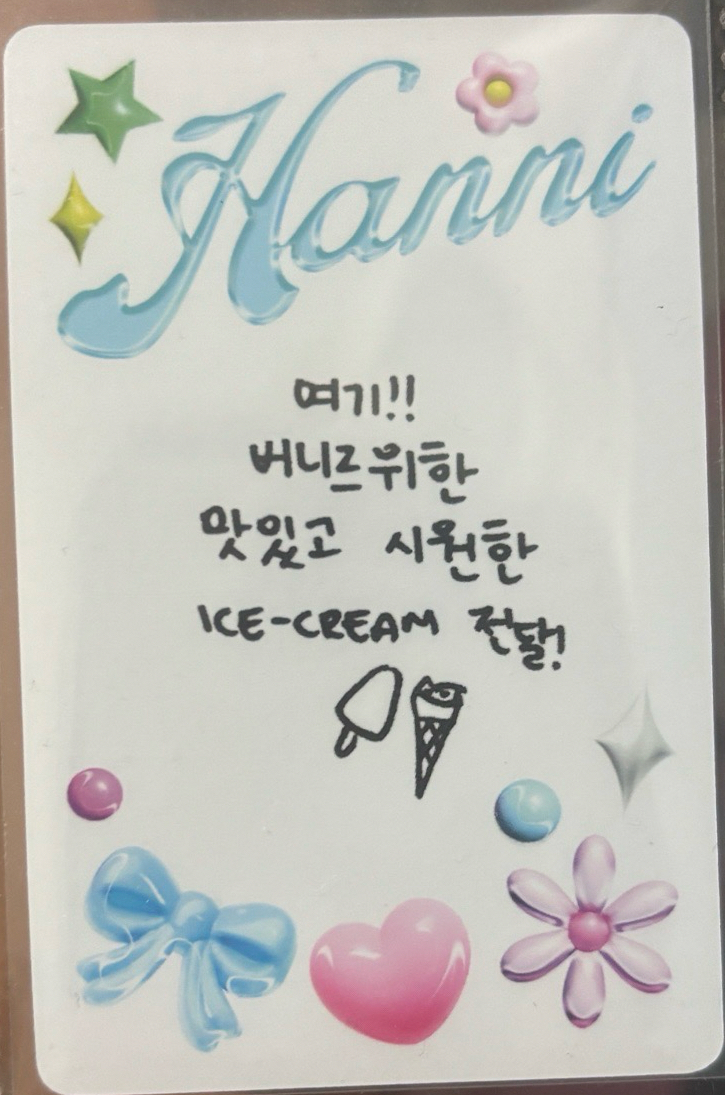 Hanni
여기!!
버니르위한
맛있고 시원한
ICE-CREAM 전달!